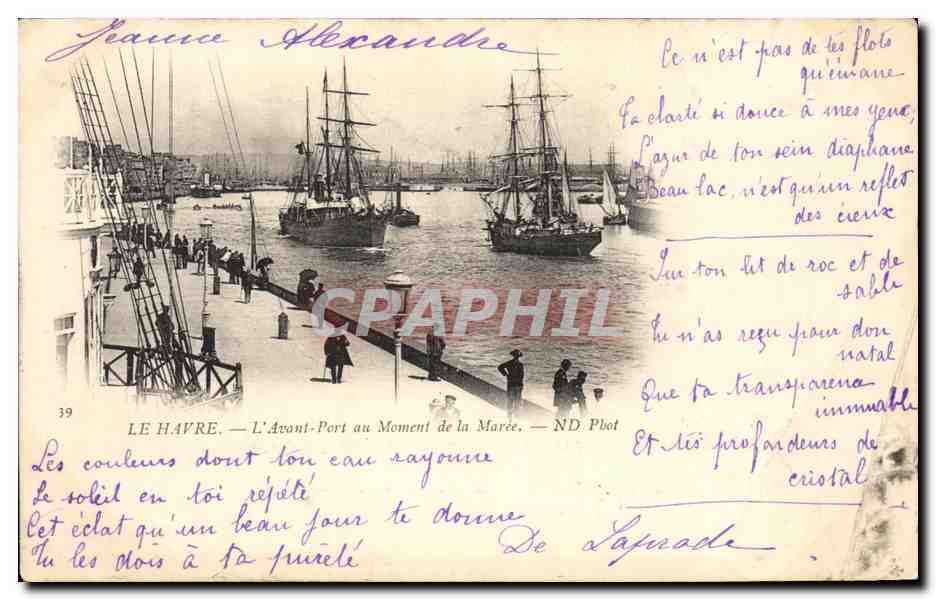 Jeanne Alexandre
Ce n'est pas de tes flots
qu'émane
Ta clarté si douce à mes yeux,
L'azur de ton sein diaphane
Beau lac, n'est qu'un reflet
des cieux
Sur ton lit de roc et de
sable
Tu n'as reçu pour don
natal
Que ta transparence
immuable
Et tes profondeurs de
cristal
CPARPHIL
39
LE HAVRE. — L'Avant-Port au Moment de la Marée. — ND Phot
Les couleurs dont ton eau rayonne
Le soleil en toi répété
Cet éclat qu'un beau jour te donne
Tu les dois à ta pureté
De Laprade